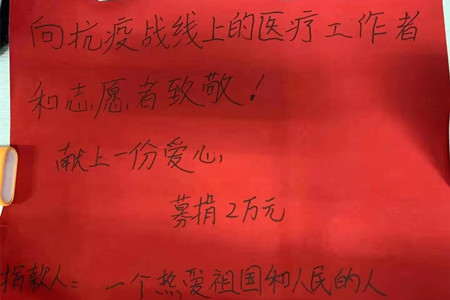 向抗疫战线上的医疗工作者
和志愿者致敬！
献上一份爱心，
募捐2万元
捐款人：一个热爱祖国和人民的人